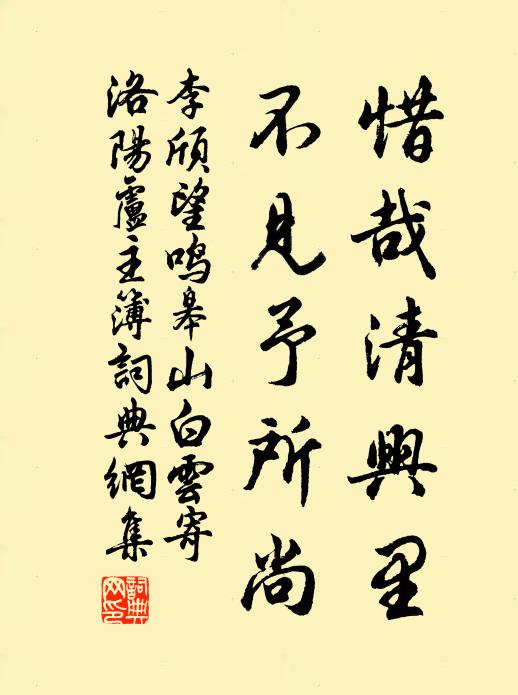 惜哉清興里
不見予所尚
李頎望鳴皋山白雲寄
洛陽盧主簿詞典網集
詞典網印